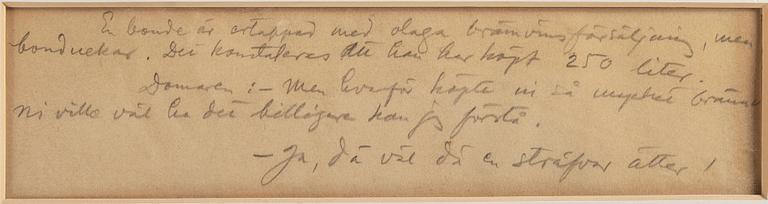 En bonde är ertappad med olaga brännvinsförsäljning, men
bonden nekar. Det konstateras att han har köpt 250 liter.
Domaren: – Men hvarför köpte ni så mycket
Ni ville väl ha det billigare kan jag förstå.
– Ja, då väl då en sträfvar åtter!